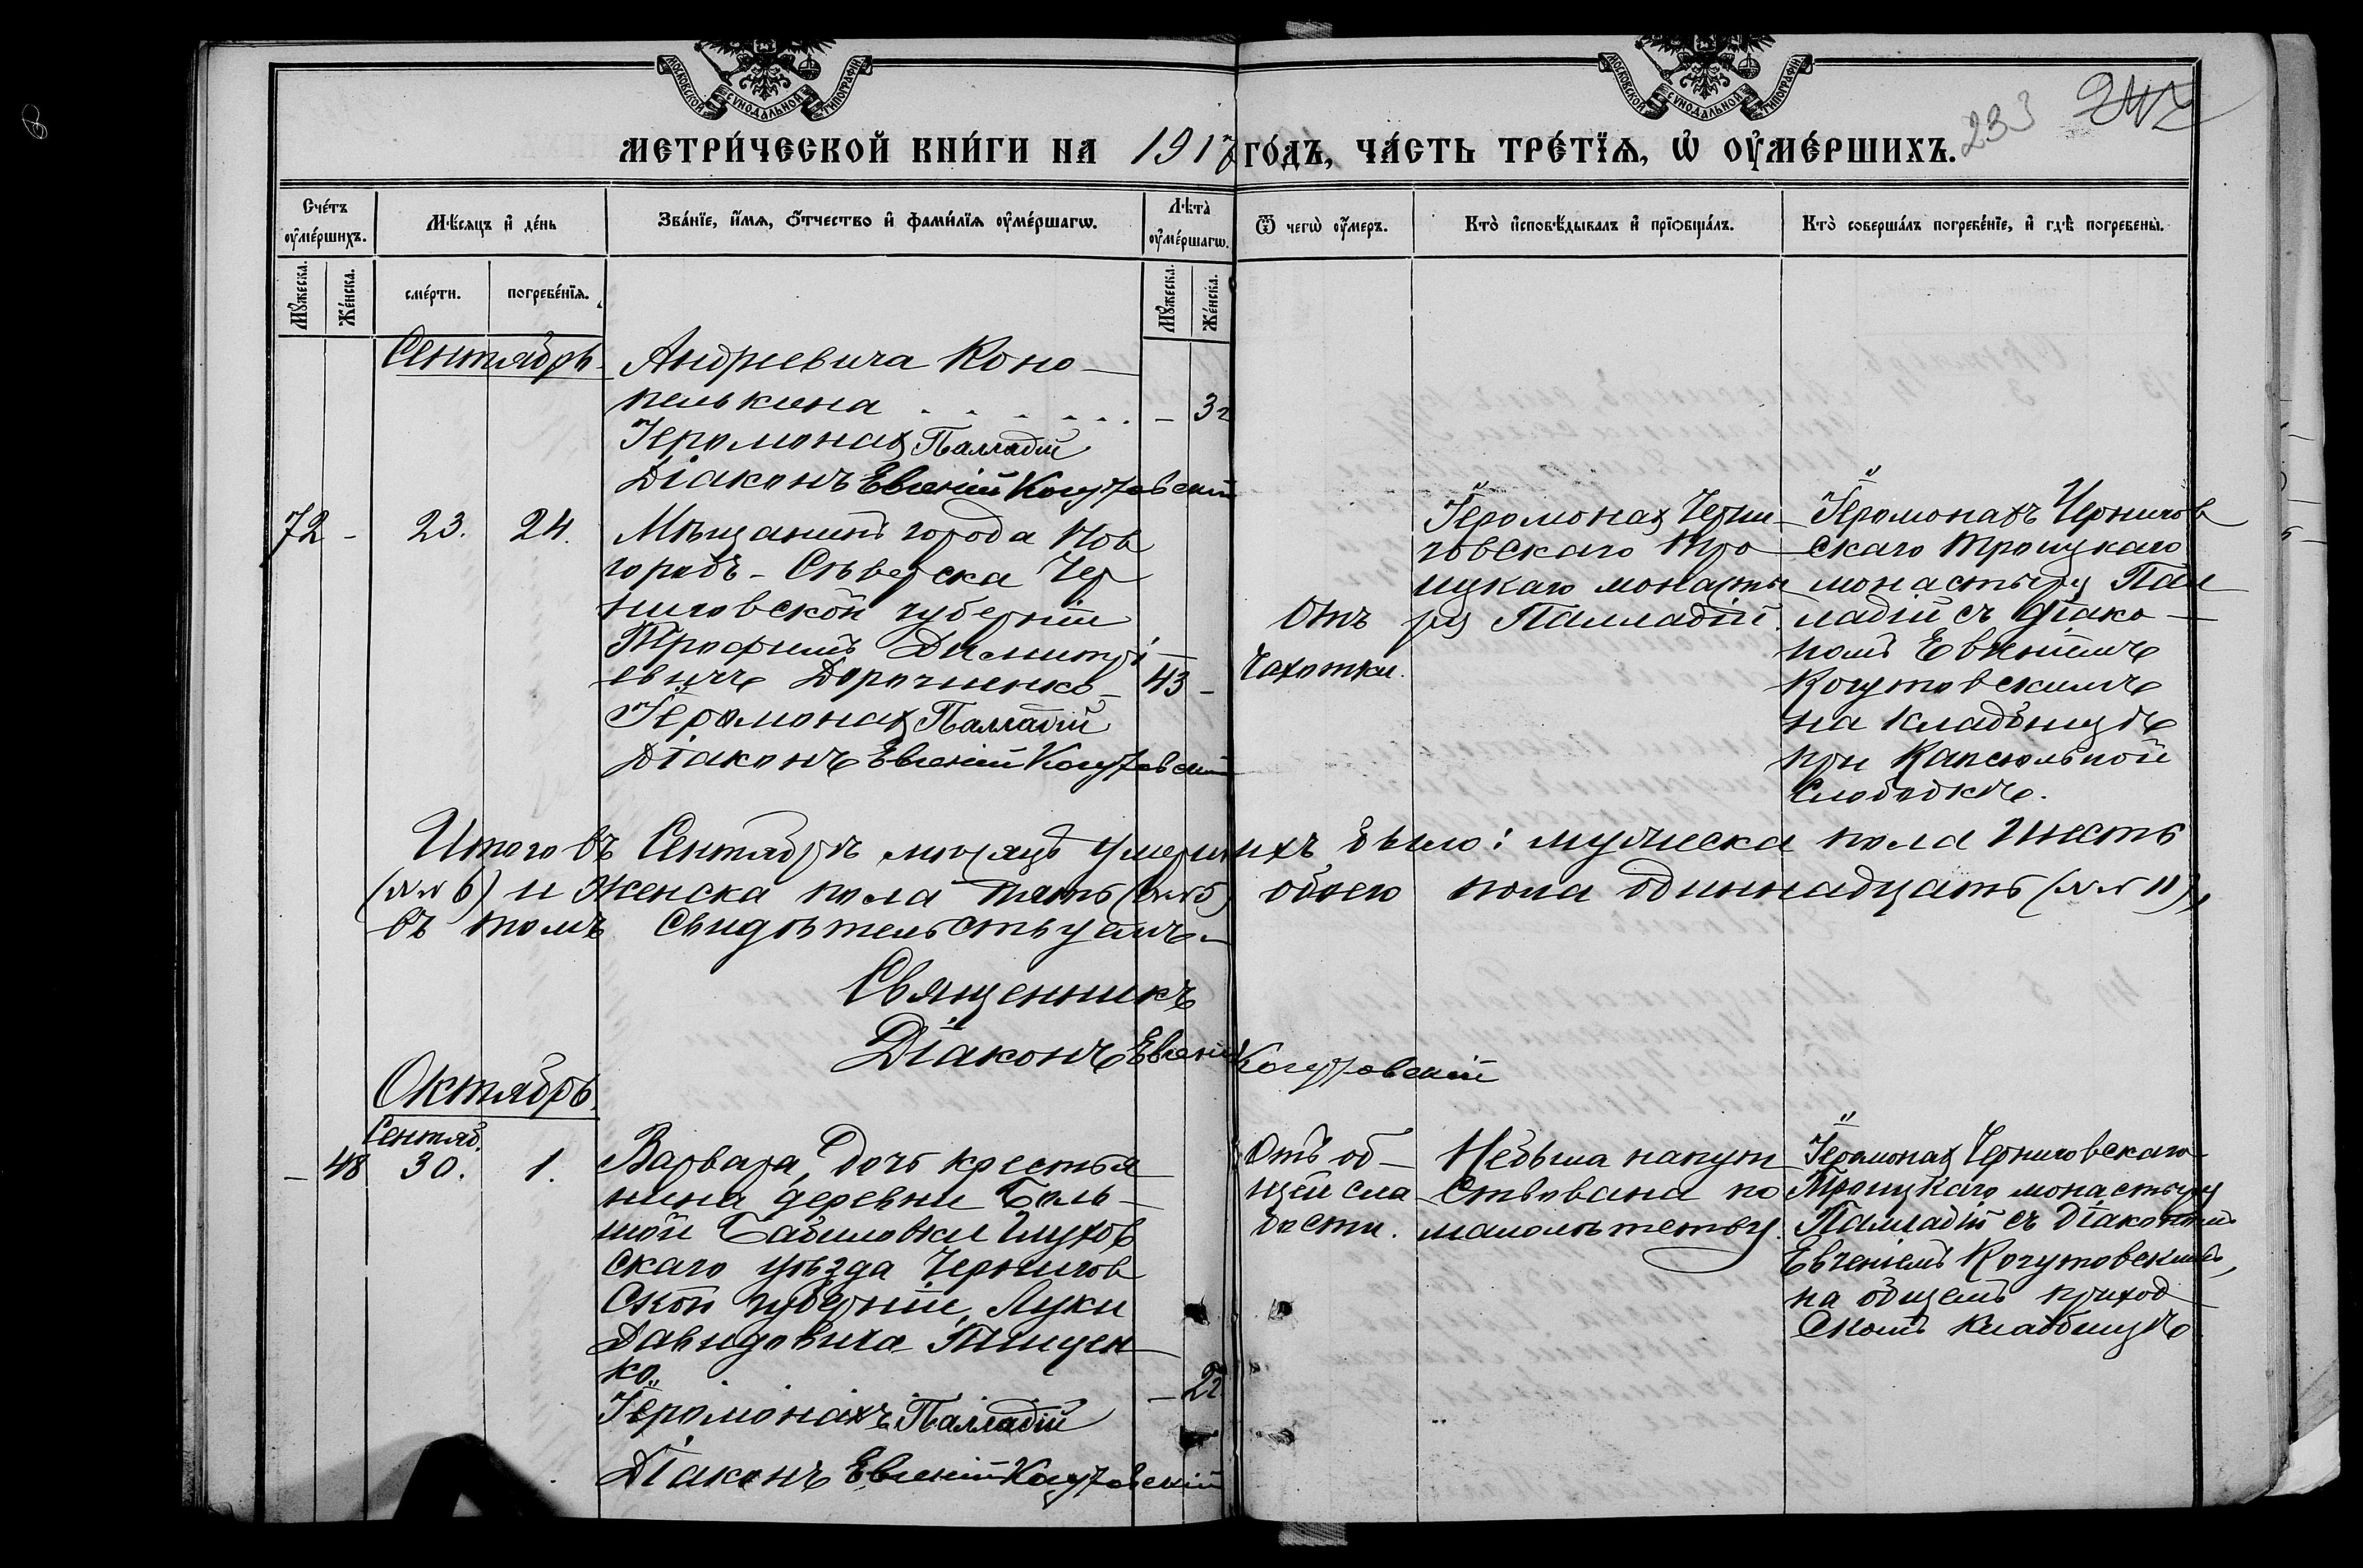 МОСКОВСКОЙ СѴНОДАЛЬНОЙ ТИПОГРАФІИ
МОСКОВСКОЙ СѴНОДАЛЬНОЙ ТИПОГРАФІИ
233
МЕТРИ́ЧЕСКОЙ КНИ́ГИ НА 1917 ГО́ДЪ, ЧА́СТЬ ТРЕ́ТЇѦ, Ѡ҆ ОУ҆МЕ́РШИХЪ.
Сче́тъ оу҆ме́ршихъ.
Мѣ́сяцъ и҆ де́нь
Зва́нїе, и҆́мя, ѻ҆́тчество и҆ фами́лїя оу҆ме́ршагѡ.
Лѣта̀ оу҆ме́ршагѡ.
Ѿ чегѡ̀ оу҆́меръ.
Кто̀ и҆сповѣ́дывалъ и҆ прїѻбща́лъ.
Кто̀ соверша́лъ погребе́нїе, и҆ гдѣ̀ погребены̀.
Мꙋ́жеска.
Же́нска.
сме́рти.
погребе́нїя.
Мꙋ́жеска.
Же́нска.
Сентябрь
Андреевича Коно-
пелькина - 3г
Іеромонахъ Палладій
Діаконъ Евгеній Когутовскій
72 - 23. 24.
Мѣщанинъ города Нов
городъ-Сѣверска Чер
ниговской губерніи
Трофимъ Димитрі
евичъ Дорошенко 43 -
Іеромонахъ Палладій
Діаконъ Евгеній Когутовскій
Отъ
чахотки.
Іеромонахъ Черни-
говскаго Тро
ицкаго монасты
ря Палладій.
Іеромонахъ Чернигов
скаго Троицкаго
монастыря Пал
ладій съ діако-
номъ Евгеніемъ
Когутовскимъ
на кладбищѣ
при Капсюльной
Слободкѣ.
Итого въ Сентябрѣ мѣсяцѣ умершихъ было: мужеска пола шесть
(№№ 6) и женска пола пять (№№ 5) обоего пола одиннадцать (№№ 11),
въ томъ свидѣтельствуемъ-
Священникъ
Діаконъ Евгеній Когутовскій
Октябрь.
Сентяб.
- 48 30. 1.
Варвара, дочь крестья
нина деревни Боль-
шой Бабиловки Глухов
скаго уѣзда Чернигов
ской губерніи, Луки
Давидовича
ко - 2г
Іеромонахъ Палладій
Діаконъ Евгеній Когутовскій
Отъ об-
щей сла
бости.
Небыла напут
ствована по
малолѣтству.
Іеромонахъ Черниговскаго
Троицкаго монастыря
Палладій съ Діакономъ
Евгеніемъ Когутовскимъ,
на общемъ приход
скомъ кладбищѣ